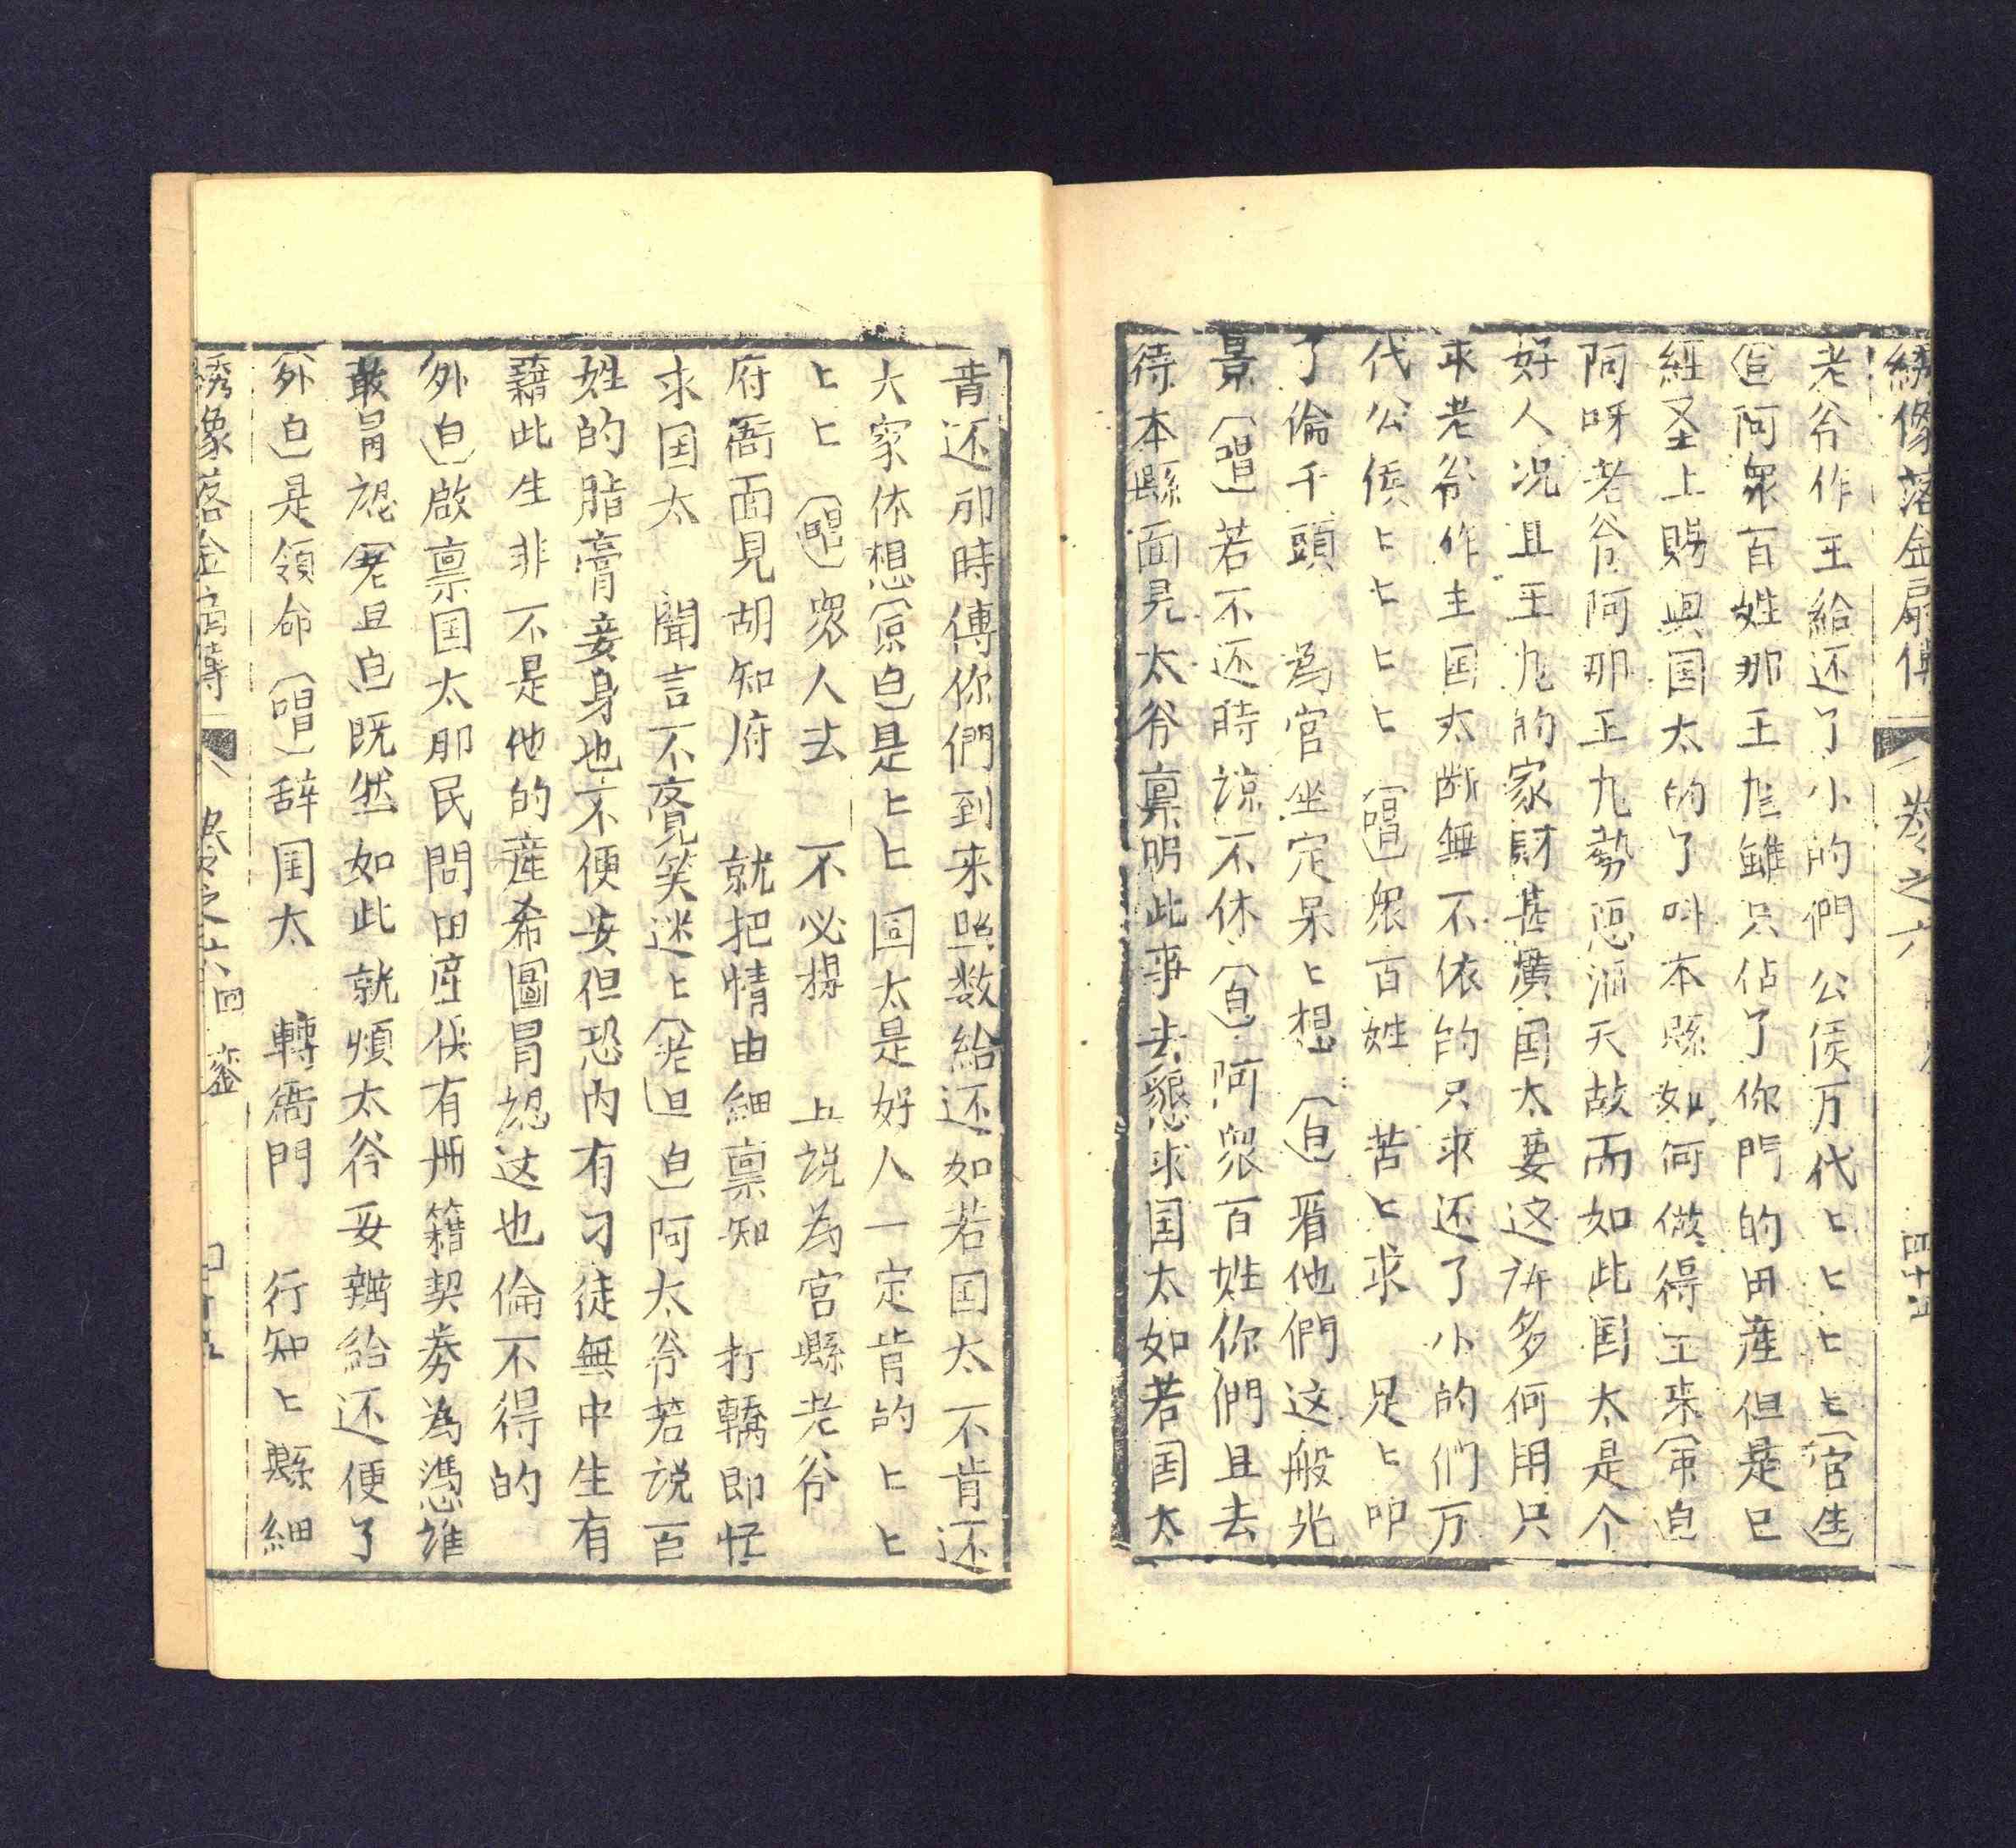 綉像落金扇傳 卷之六 四十五
老爷作主給还了小的們公侯万代匕匕匕匕(官生
白)阿衆百姓那王九雖只佔了你門的田產但是已
經圣上賜與国太的了叫本縣如何做得主来(众白)
阿呀老爷阿那王九勢惡滔天故而如此国太是个
好人况且王九的家財甚廣国太要这许多何用只
求老爷作主国太断無不依的只求还了小的们万
代公侯匕匕匕匕 (唱)衆百姓 苦匕求 足匕叩
了倫千頭 為官坐定呆匕想 (白)看他們这般光
景(唱)若不还時諒不休(白)阿衆百姓你們且去
待本縣面見太爷禀明此事去懇求国太如若国太
肯还那時傳你們到来照数給还如若国太不肯还
大家休想(众白)是匕匕国太是好人一定肯的匕匕
匕匕 (唱)衆人去 不必提 且説為官縣老爷
府衙面見胡知府 就把情由細禀知 打轎即忙
求国太 聞言不覔笑迷匕(老旦白)阿太爷若説百
姓的脂膏妾身也不便安但恐内有刁徒無中生有
藉此生非不是他的産希圖冒認这也倫不得的
(外白)啟禀国太那民間田産俱有册籍契券為憑誰
敢冒認(老旦白)既然如此就煩太爷妥辦給还便了
(外白)是領命(唱)辞国太 轉衙門 行知匕縣細
綉像落金扇傳 卷之六 四